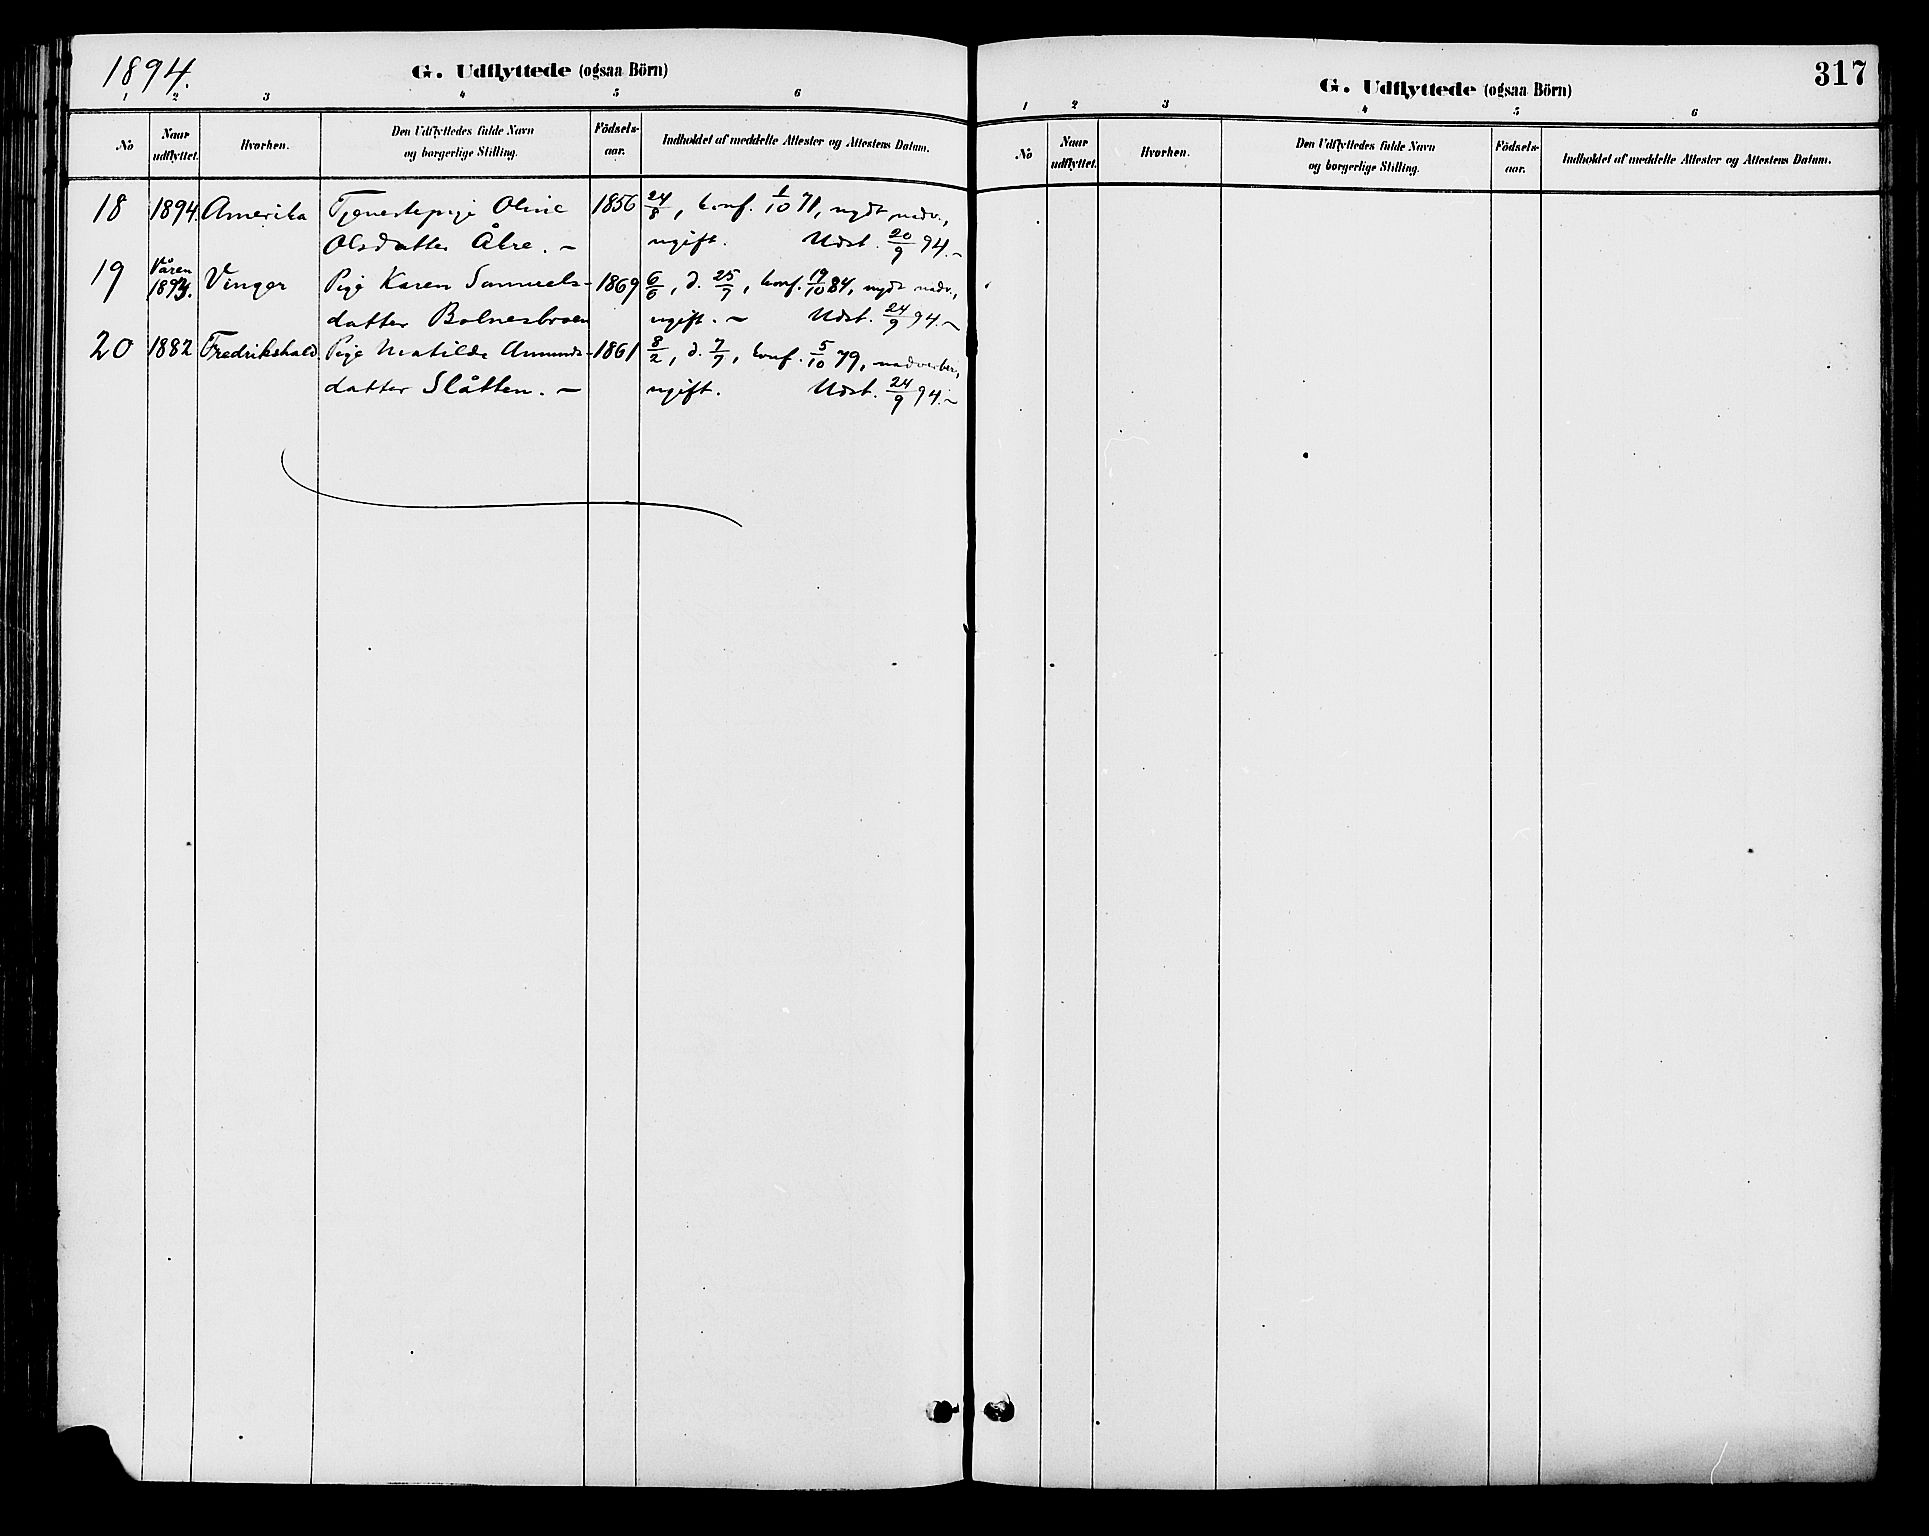 1894.
G. Udflyttede (ogsaa Börn)
1 2 3 4 5 6
No Naar udflyttet. Hvorhen. Den Udflyttedes fulde Navn og borgerlige Stilling. Födsels-aar. Indholdet af meddelte Attester og Attestens Datum.
18 1894 Amerika Tjenestepige Oline 1856 24/8, konf. 1/10 71, nydt nadv.,
Olsdatter Åbre. – ugift. Udst. 20/9 94. –
19 Våren 1893. Vinger Pige Karen Samuels- 1869 6/6, d. 25/7, konf. 19/10 84, nydt nadv.,
datter Bolnesbroen ugift. – Udst. 24/9 94. –
20 1882 Fredrikshald Pige Matilde Amunds- 1861 8/2, d. 7/7, konf. 5/10 79, nadverber.,
datter Slåtten. – ugift. Udst. 24/9 94. –
317
G. Udflyttede (ogsaa Börn)
1 2 3 4 5 6
No Naar udflyttet. Hvorhen. Den Udflyttedes fulde Navn og borgerlige Stilling. Födsels-aar. Indholdet af meddelte Attester og Attestens Datum.